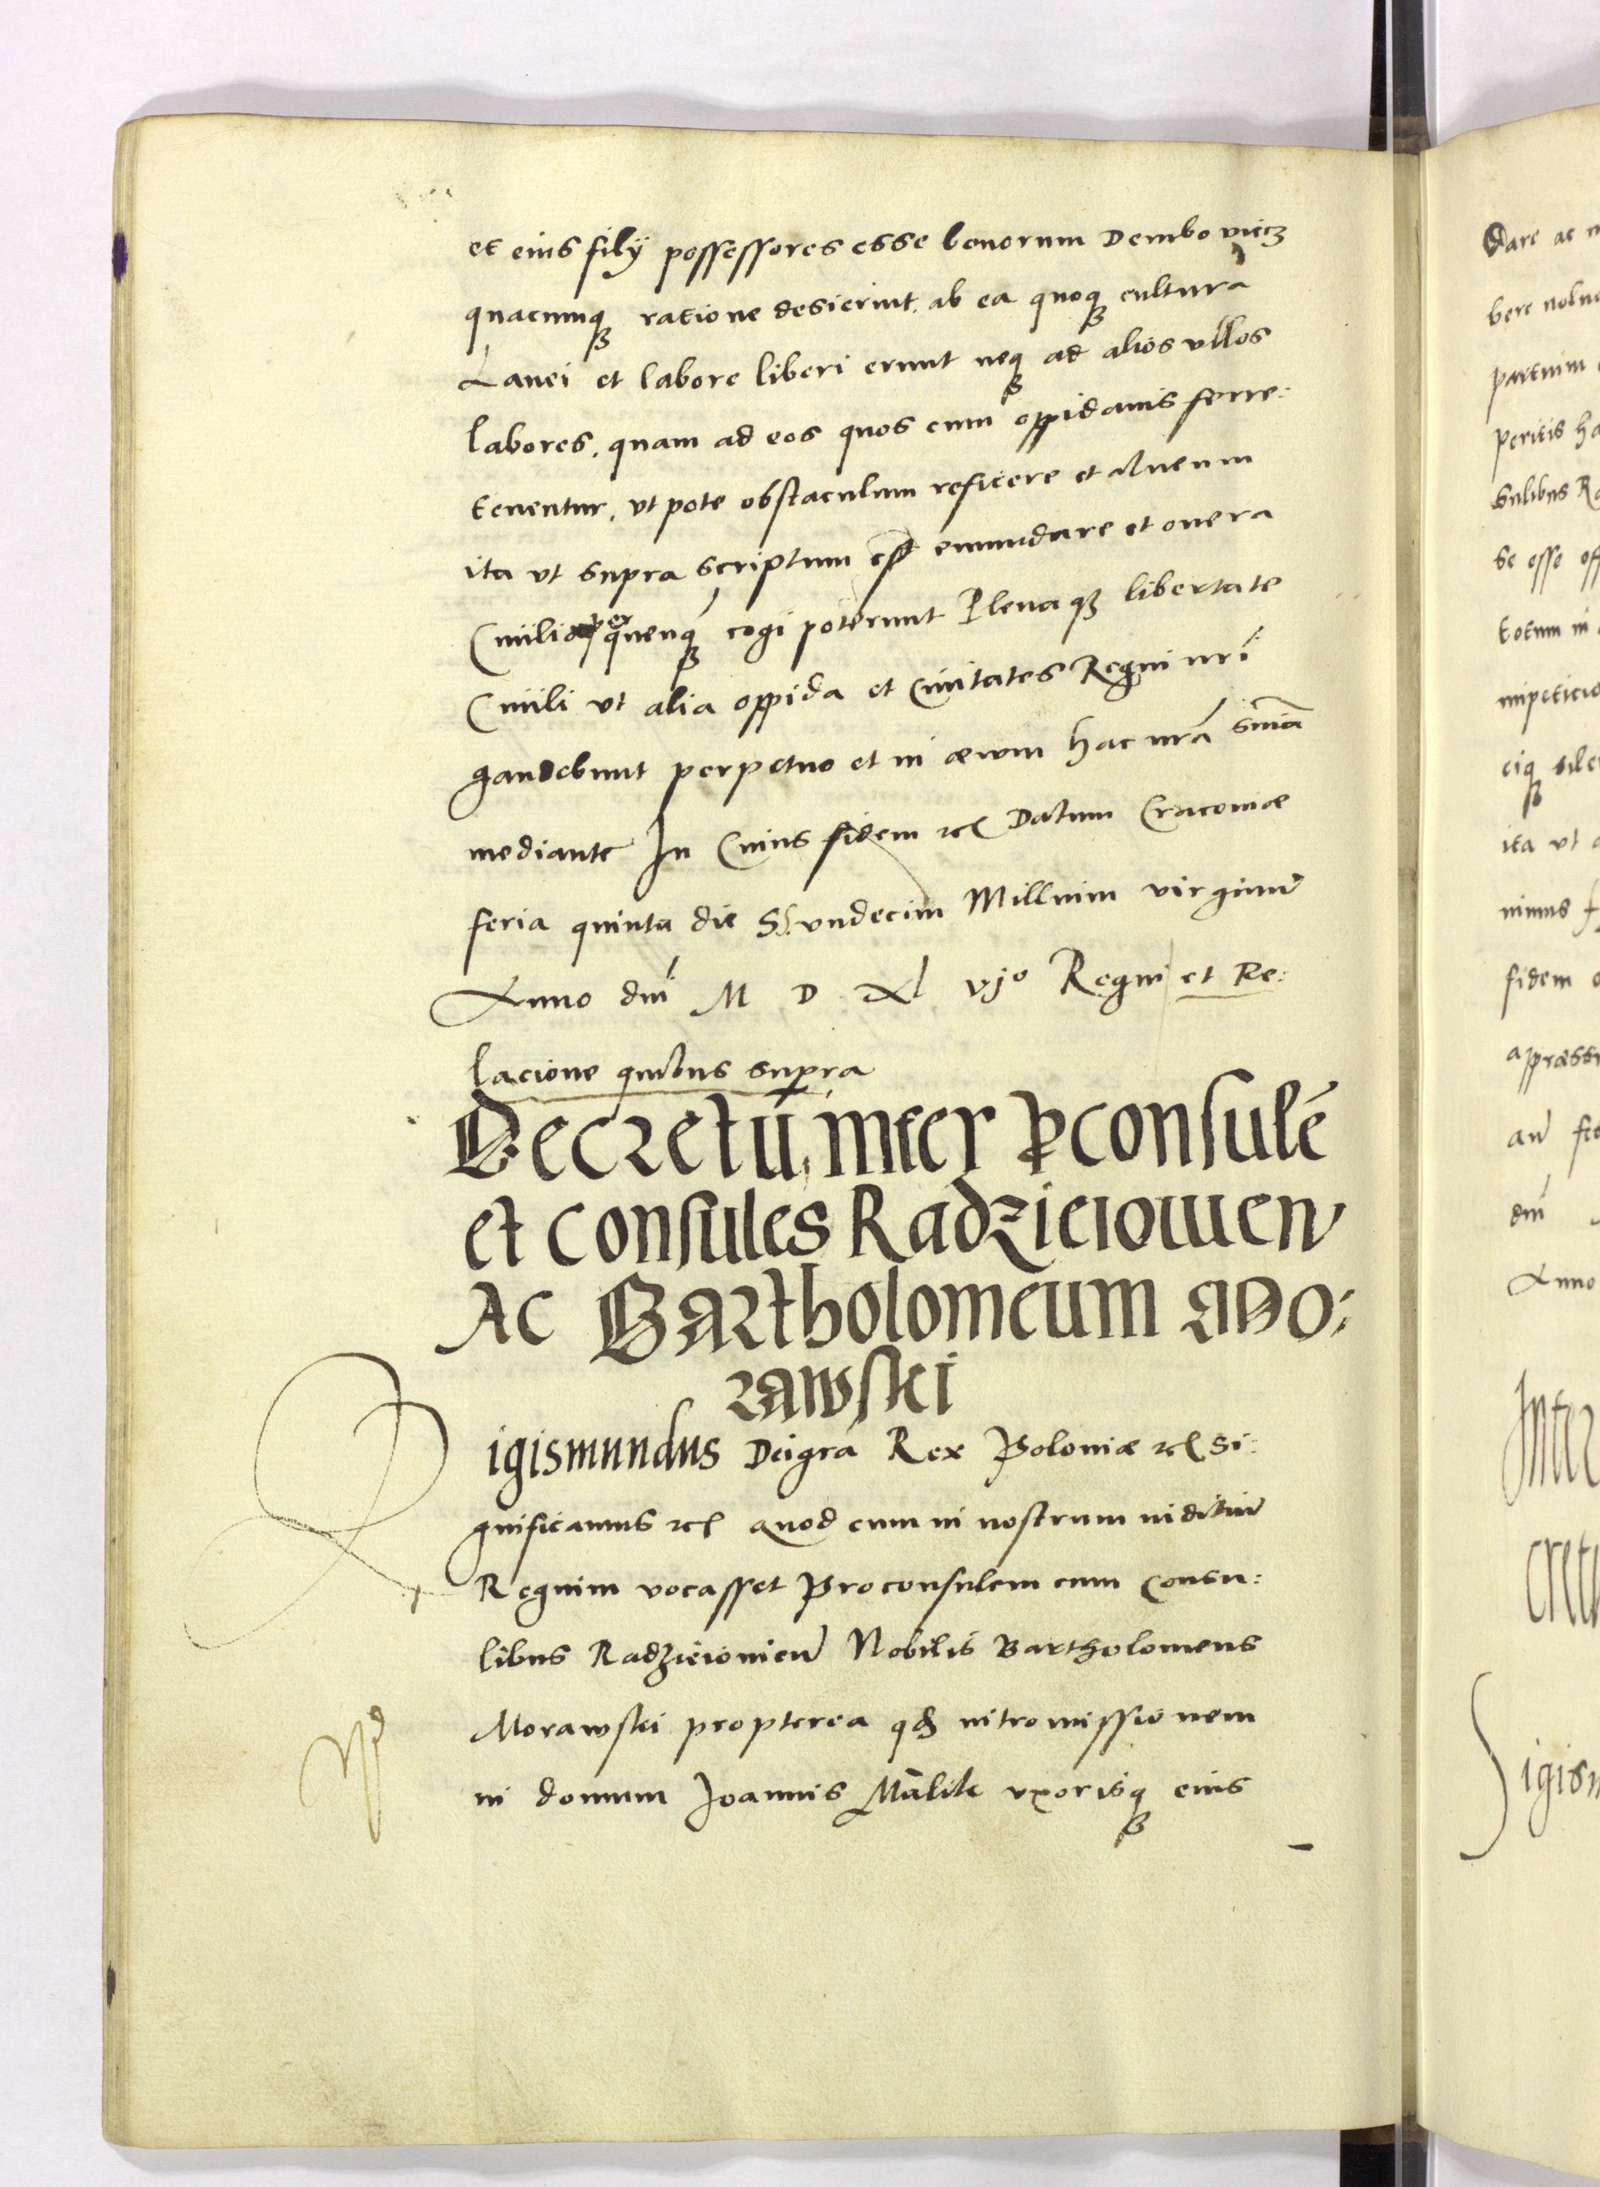 et eius filÿ possessores esse bonorum Dembowiecz
quacunq₃ ratione desierint. ab ea quoq₃ cultura
Lanei et labore liberi erunt neq₃ ad alios vllos
labores. quam ad eos quos cum oppidanis ferre:
tenentur. vt pote obstaculum reficere et alueum
ita vt supra scriptum est emundare et onera
Ciuilia per quenq₃ cogi poterunt Plenaq₃ libertate
Ciuili vt alia oppida et Ciuitates Regni nrī
gaudebunt perpetuo et in æwm hac nrā snīa
mediante In Cuius fidem etc Datum Cracouiæ
feria quinta die S. vndecim Millium virginum̄
Anno dnī M D Xl vjº Regni et Re:
lacione quibus supra
Decretū inter ꝓconsulē
et consules Radzieiowien
Ac Bartholomeum Mo:
rawski
igismundus Dei grā Rex Poloniæ etc Si:
gnificamus etc Quod cum in nostrum iuditiū
Regium vocasset Proconsulem cum Consu:
libus Radzieiouien̄ Nobilis Bartholomeus
Morawski propterea qd intromissionem
in domum Joannis Malik vxorisq₃ eius
Dare ac
bere
peritis
sulibus
se esse
totum in
eiq₃
ita vt
fidem
dnī
Anno
Inter
cretu
igism